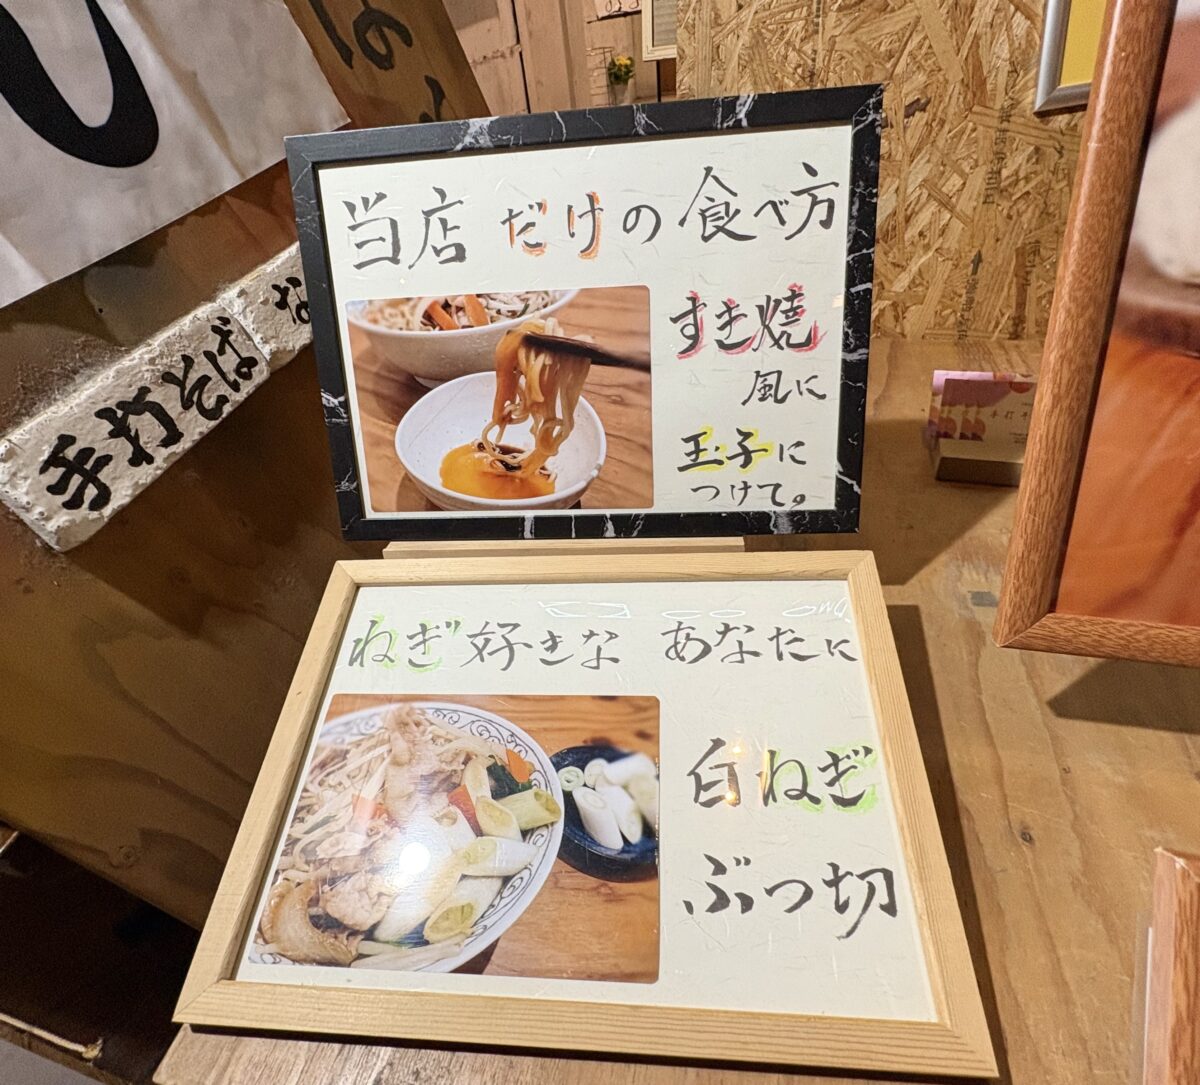 当店だけの食べ方
すき焼
風に
玉子に
つけて。
ねぎ好きな あなたに
白ねぎ
ぶつ切
手打そば
な